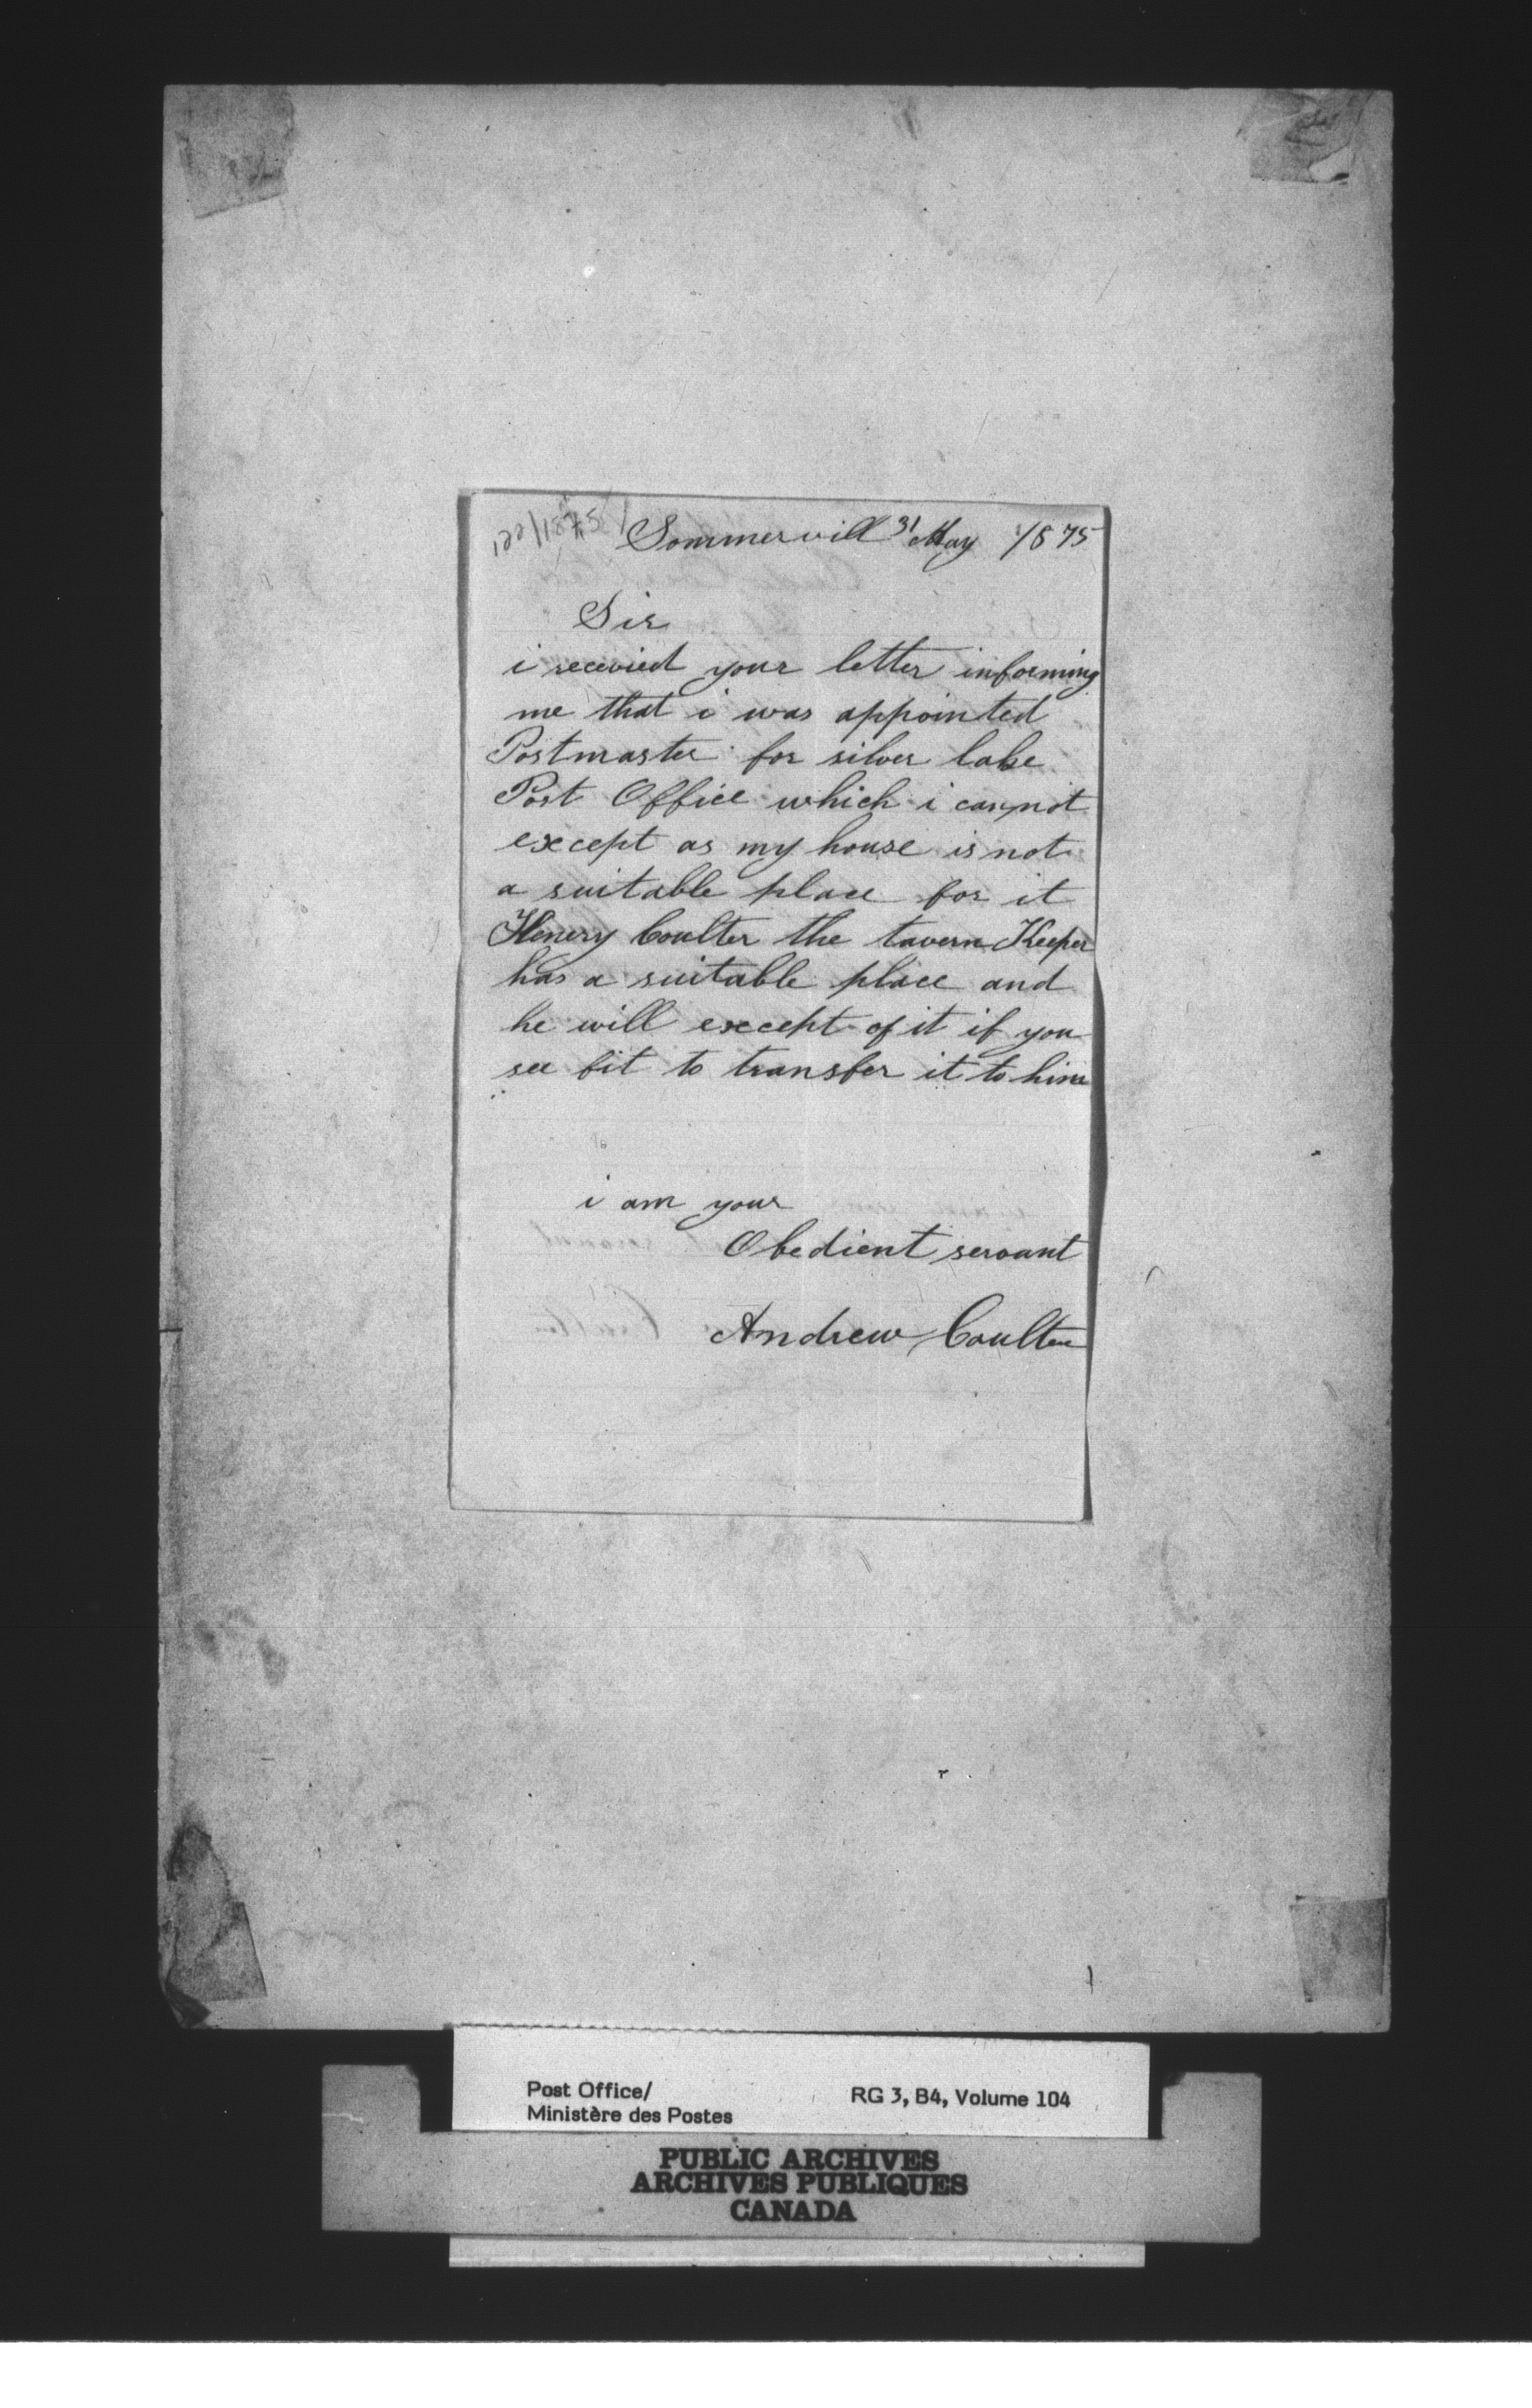 122/1875
Sommervill 31 May 1875
Sir
i recevied your letter informing
me that i was appointed
Postmaster for silver lake
Post Office which i cannot
except as my house is not
a suitable place for it
Henery Coulter the tavern Keeper
has a suitable place and
he will except of it if you
see fit to transfer it to him
i am your
Obedient servant
Andrew Coulter
Post Office/
Ministère des Postes
RG 3, B4, Volume 104
PUBLIC ARCHIVES
ARCHIVES PUBLIQUES
CANADA